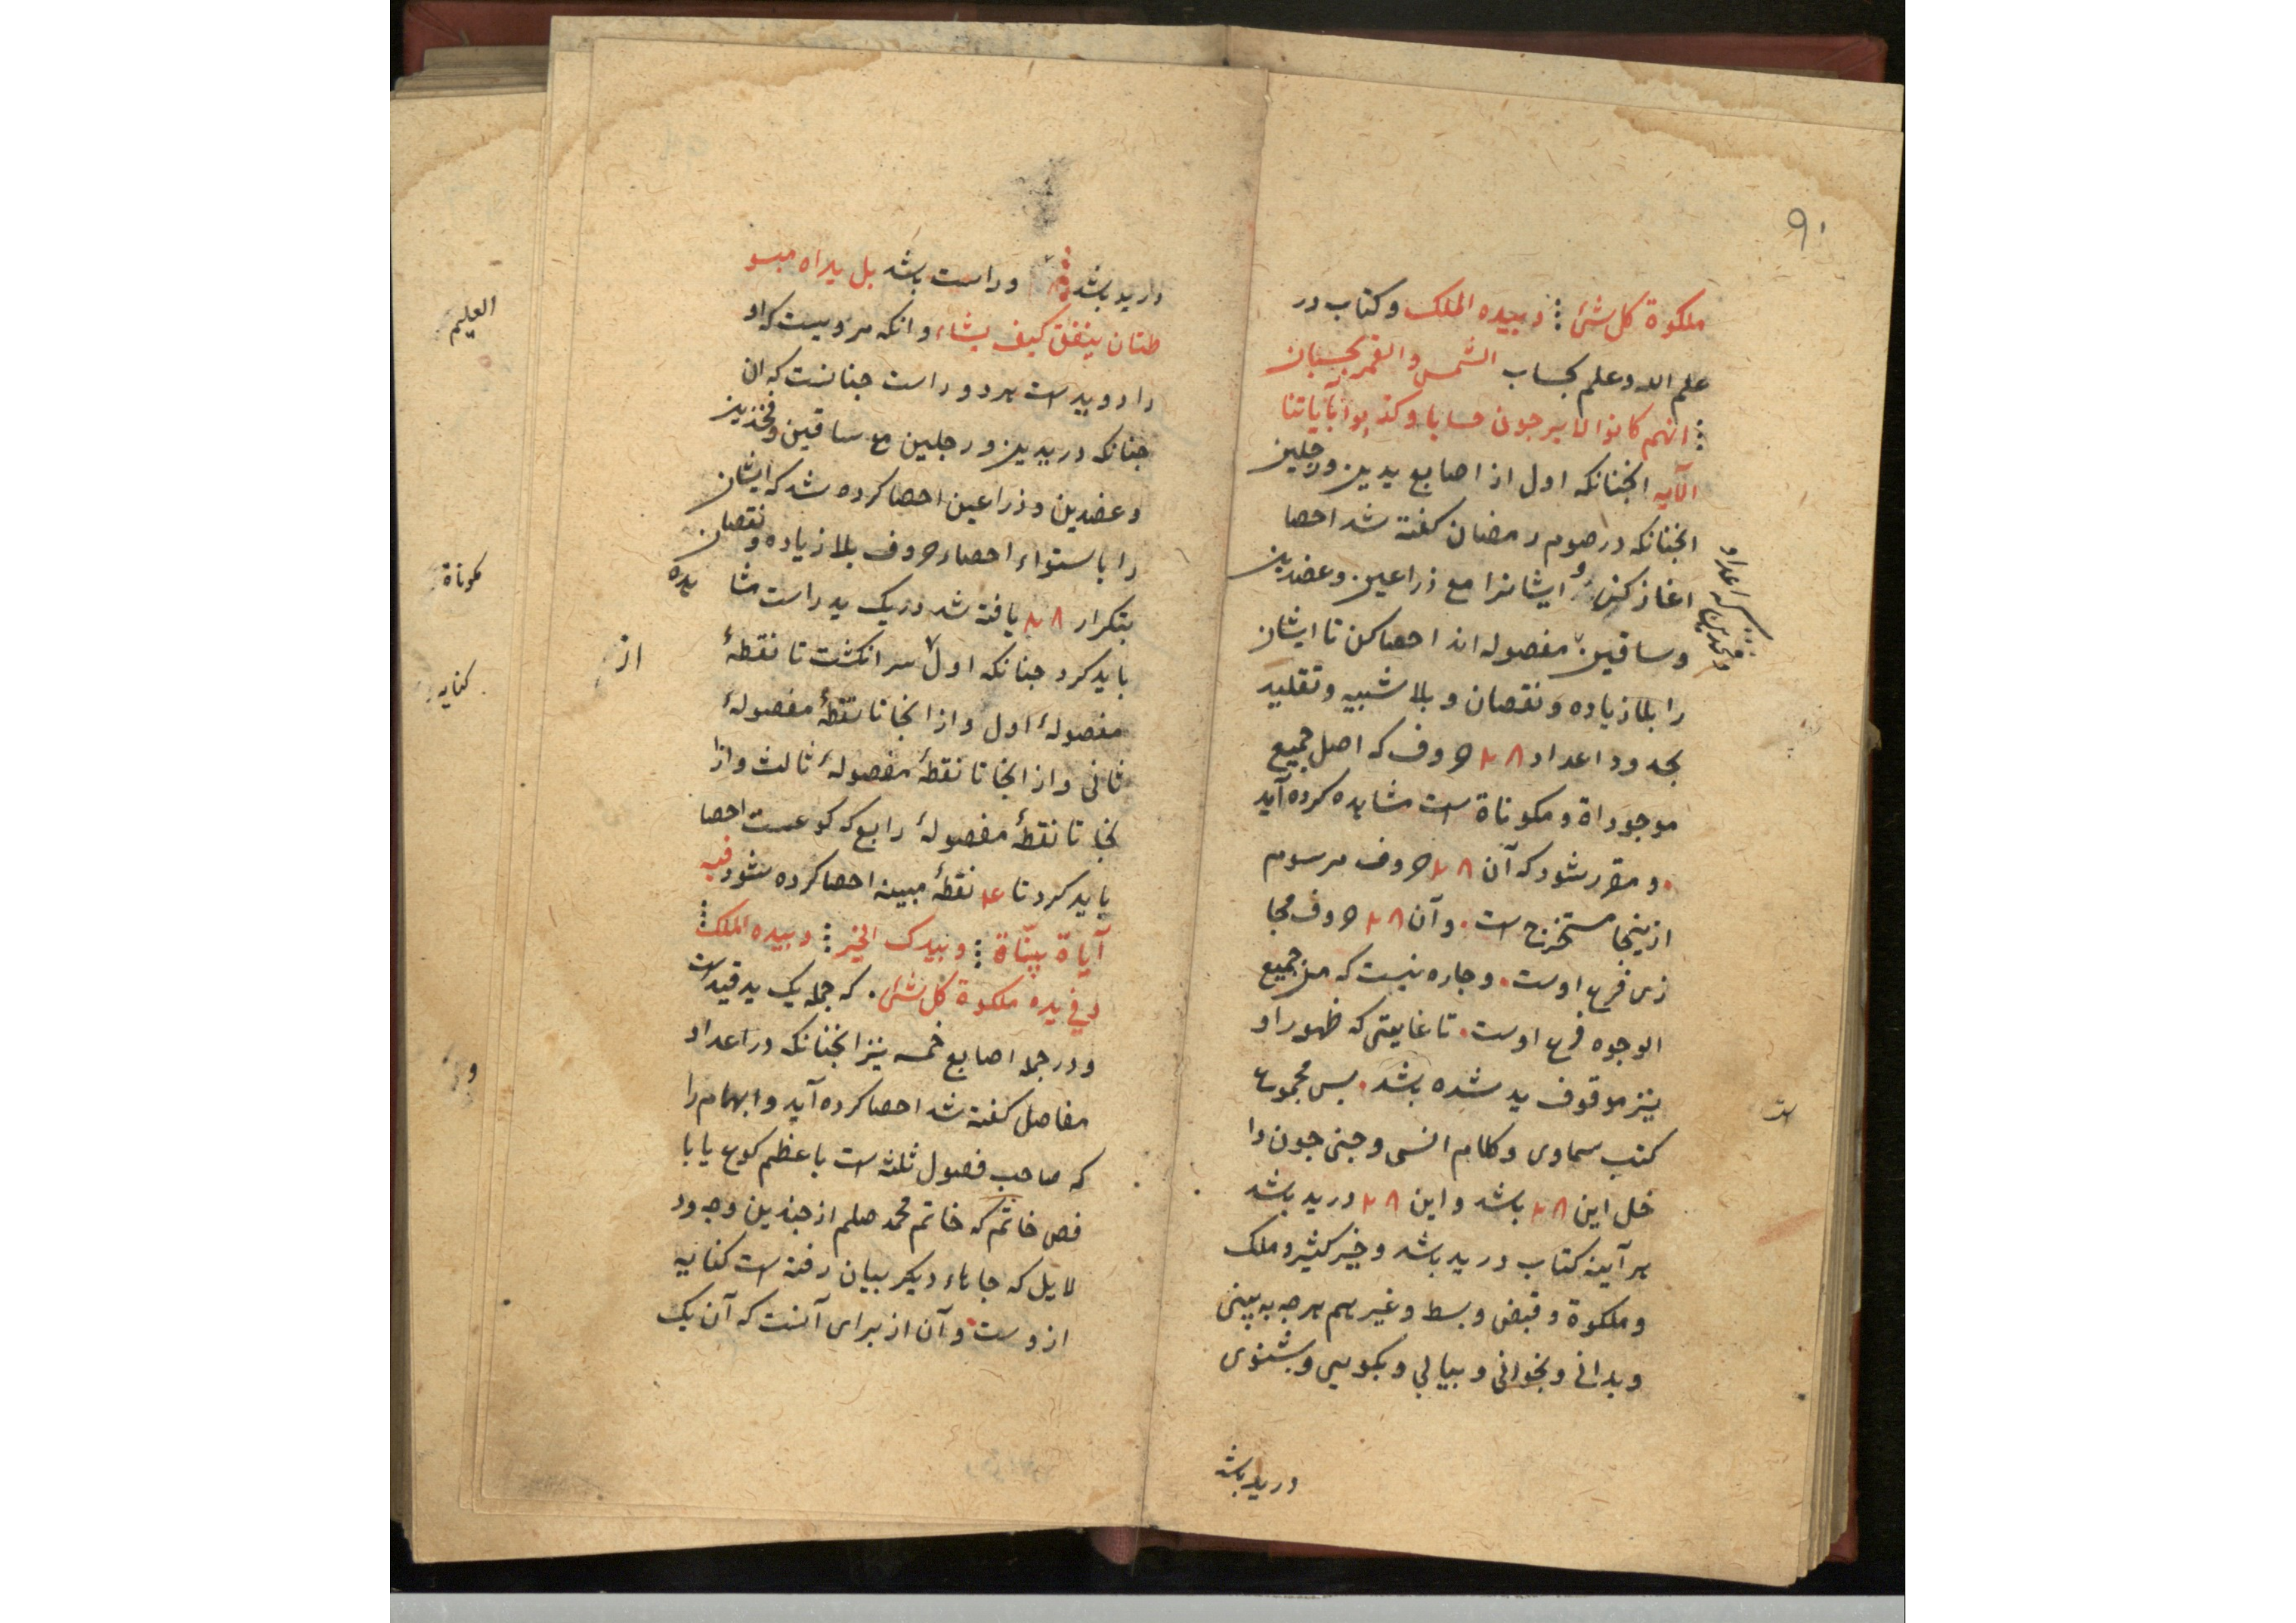 ۹۱
ملکوة کل شئ ⁝ و بیده الملک و کتاب در
علم الله و علم بحساب الشّمس و القمر بحسبان
⁝ انهم کانوا لا یرجون حسابا و کذبوا بآیاتنا
الآیه انچنانکه اول از اصابع یدین و رجلین
انچنانکه در صوم رمضان کفته شد احصا
اغاز کنی و ایشانرا مع ذراعین و عضدین
و فخذین که اعداد
و ساقین مفصوله اند احصا کن تا ایشان
را بلا زیاده و نقصان و بلا شبیه و تقلید
بحدود اعداد ۲۸ حروف که اصل جمیع
موجوداة و مکوناة است مشاهده کرده آید
و مقرر شود که آن ۲۸ حروف مرسوم
ازینجا مستخرج است و آن ۲۸ حروف مجا
زی فرع اوست و جاره نیست که من جمیع
الوجوه فرع اوست تا غایتی که ظهور او
نیز موقوف ید شده باشد بس مجموع
است
کتب سماوی و کلام انسی و جنی جون دا
خل این ۲۸ باشد و این ۲۸ در ید باشد
هر آینه کتاب در ید باشد و خیر کثیر و ملک
و ملکوة و قبض و بسط و غیرهم هرجه به بینی
و بدانی و بخوانی و بیابی و بکویی و بشنوی
در ید باشد
در ید باشد و راست باشد بل یداه مبسو
طتان ینفق کیف یشاء و انکه مرویست که او
را دو ید است هر دو راست جنانست که ان
جنانکه در یدین و رجلین مع ساقین و فخذین
و عضدین و ذراعین احصا کرده شد که ایشان
را باستواء احصاء حروف بلا زیاده و نقصان
بتکرار ۲۸ یافته شد در یک ید راست مشا
هده
باید کرد جنانکه اول سر انکشت تا نقطهٔ
از
مفصولهٔ اول و از انجا تا نقطهٔ مفصولهٔ
ثانی و از انجا تا نقطهٔ مفصولهٔ ثالث و از ا
نجا تا نقطهٔ مفصولهٔ رابع که کوعست احصا
باید کرد تا نقطهٔ مبینه احصا کرده شود فیه
آیاة بیّناة ⁝ و بیدک الخیر ⁝ و بیده الملک ⁝
و فی یده ملکوة کل شئ که جمله یک ید قید است
و در جمله اصابع خمسه نیز انجنانکه در اعداد
مفاصل کفته شد احصا کرده آید و ابهام را
که صاحب فصول ثلثه است با عظم کوع یا با
فص خاتم که خاتم محمد صلعم از جندین وجود
لایل که جاهاء دیکر بیان رفته است کنایه
ازوست و آن از برای آنست که آن یک
العلیم
مکوناة
کنایه
و